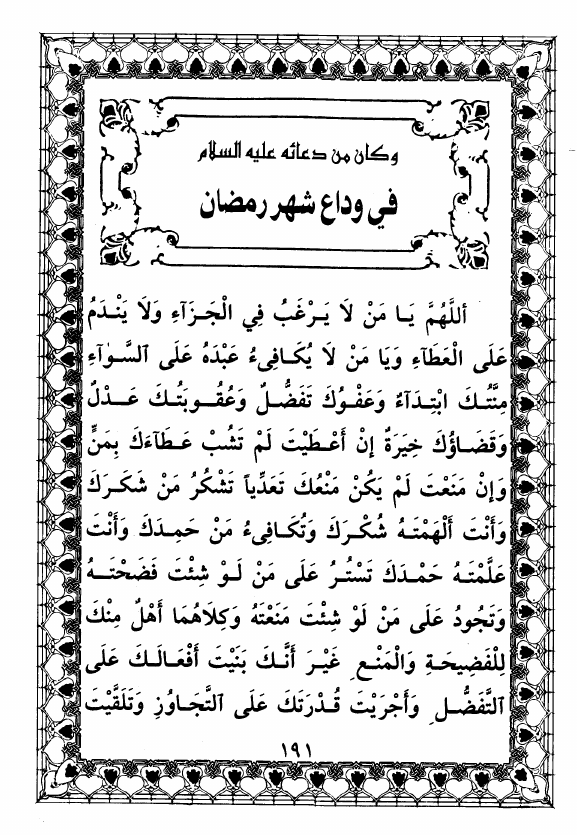 وكان من دعائه عليه السلام
في وداع شهر رمضان
أَللَّهُمَّ يَا مَنْ لَا يَرْغَبُ فِي الْجَزَآءِ وَلَا يَنْدَمُ
عَلَى الْعَطَآءِ وَيَا مَنْ لَا يُكَافِىءُ عَبْدَهُ عَلَى السَّوَآءِ
مِنَّتُكَ ابْتِدَآءٌ وَعَفْوُكَ تَفَضُّلٌ وَعُقُوبَتُكَ عَدْلٌ
وَقَضَاؤُكَ خِيَرَةٌ إِنْ أَعْطَيْتَ لَمْ تَشُبْ عَطَآءَكَ بِمَنٍّ
وَإِنْ مَنَعْتَ لَمْ يَكُنْ مَنْعُكَ تَعَدِّياً تَشْكُرُ مَنْ شَكَرَكَ
وَأَنْتَ أَلْهَمْتَهُ شُكْرَكَ وَتُكَافِىءُ مَنْ حَمِدَكَ وَأَنْتَ
عَلَّمْتَهُ حَمْدَكَ تَسْتُرُ عَلَى مَنْ لَوْ شِئْتَ فَضَحْتَهُ
وَتَجُودُ عَلَى مَنْ لَوْ شِئْتَ مَنَعْتَهُ وَكِلَاهُمَا أَهْلٌ مِنْكَ
لِلْفَضِيحَةِ وَالْمَنْعِ غَيْرَ أَنَّكَ بَنَيْتَ أَفْعَالَكَ عَلَى
التَّفَضُّلِ وَأَجْرَيْتَ قُدْرَتَكَ عَلَى التَّجَاوُزِ وَتَلَقَّيْتَ
١٩١